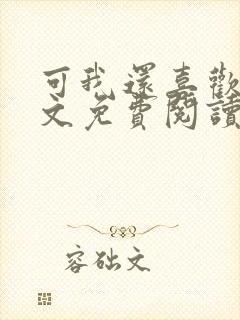 可我還喜歡
文免費閱讀
容础文